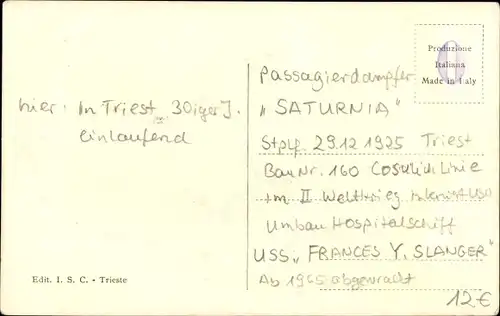 Produzione
Italiana
Made in Italy
hier: In Triest 30iger J.
einlaufend
Passagierdampfer
"SATURNIA"
Stplf. 29.12 1925 Triest
BauNr. 160 Cosulich Linie
im II Weltkrieg USA
Umbau Hospitalschiff
USS "FRANCES Y. SLANGER"
Ab 1965 abgewrackt
12€
Edit. I. S. C. - Trieste